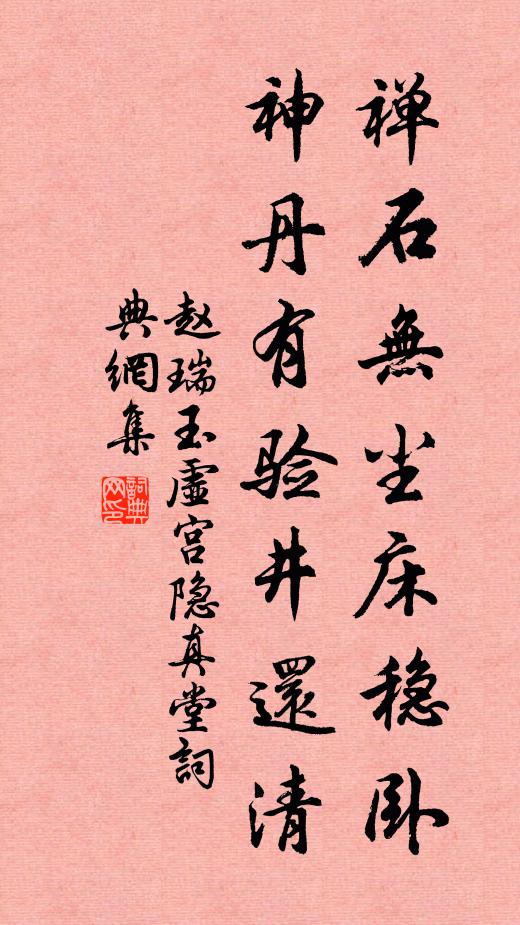 禅石無尘床稳卧
神丹有验井還清
赵瑞玉虚宫隐真堂詞
典網集
詞典网印